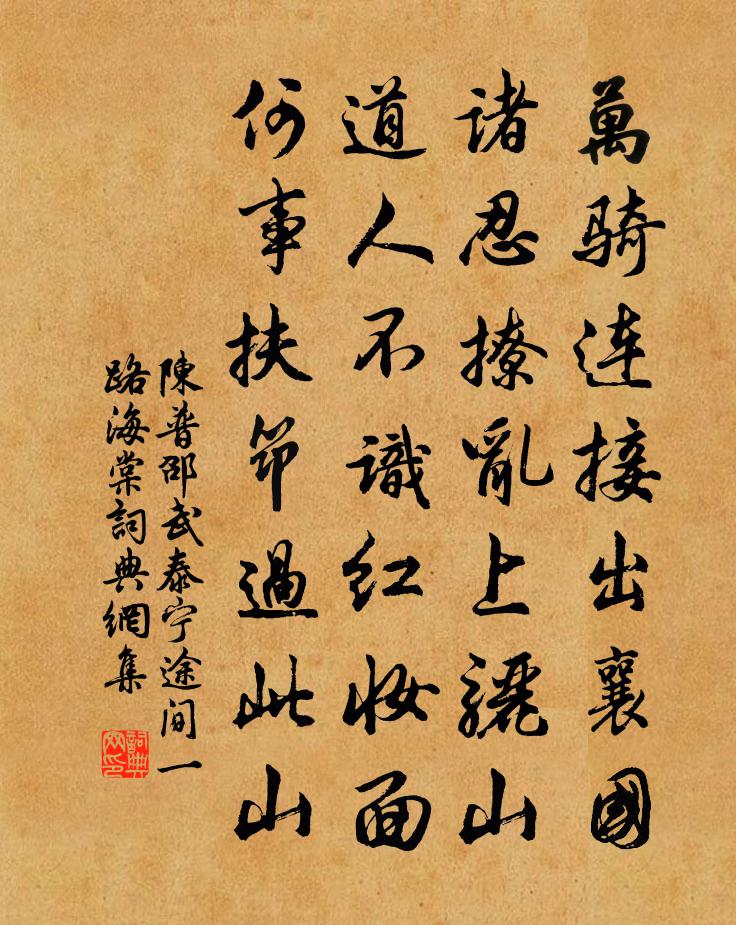 萬騎连接出襄國
诸忍撩亂上骊山
道人不識红妝面
何事扶筇過此山
陳普邵武泰宁途间一
路海棠詞典網集
詞典網印